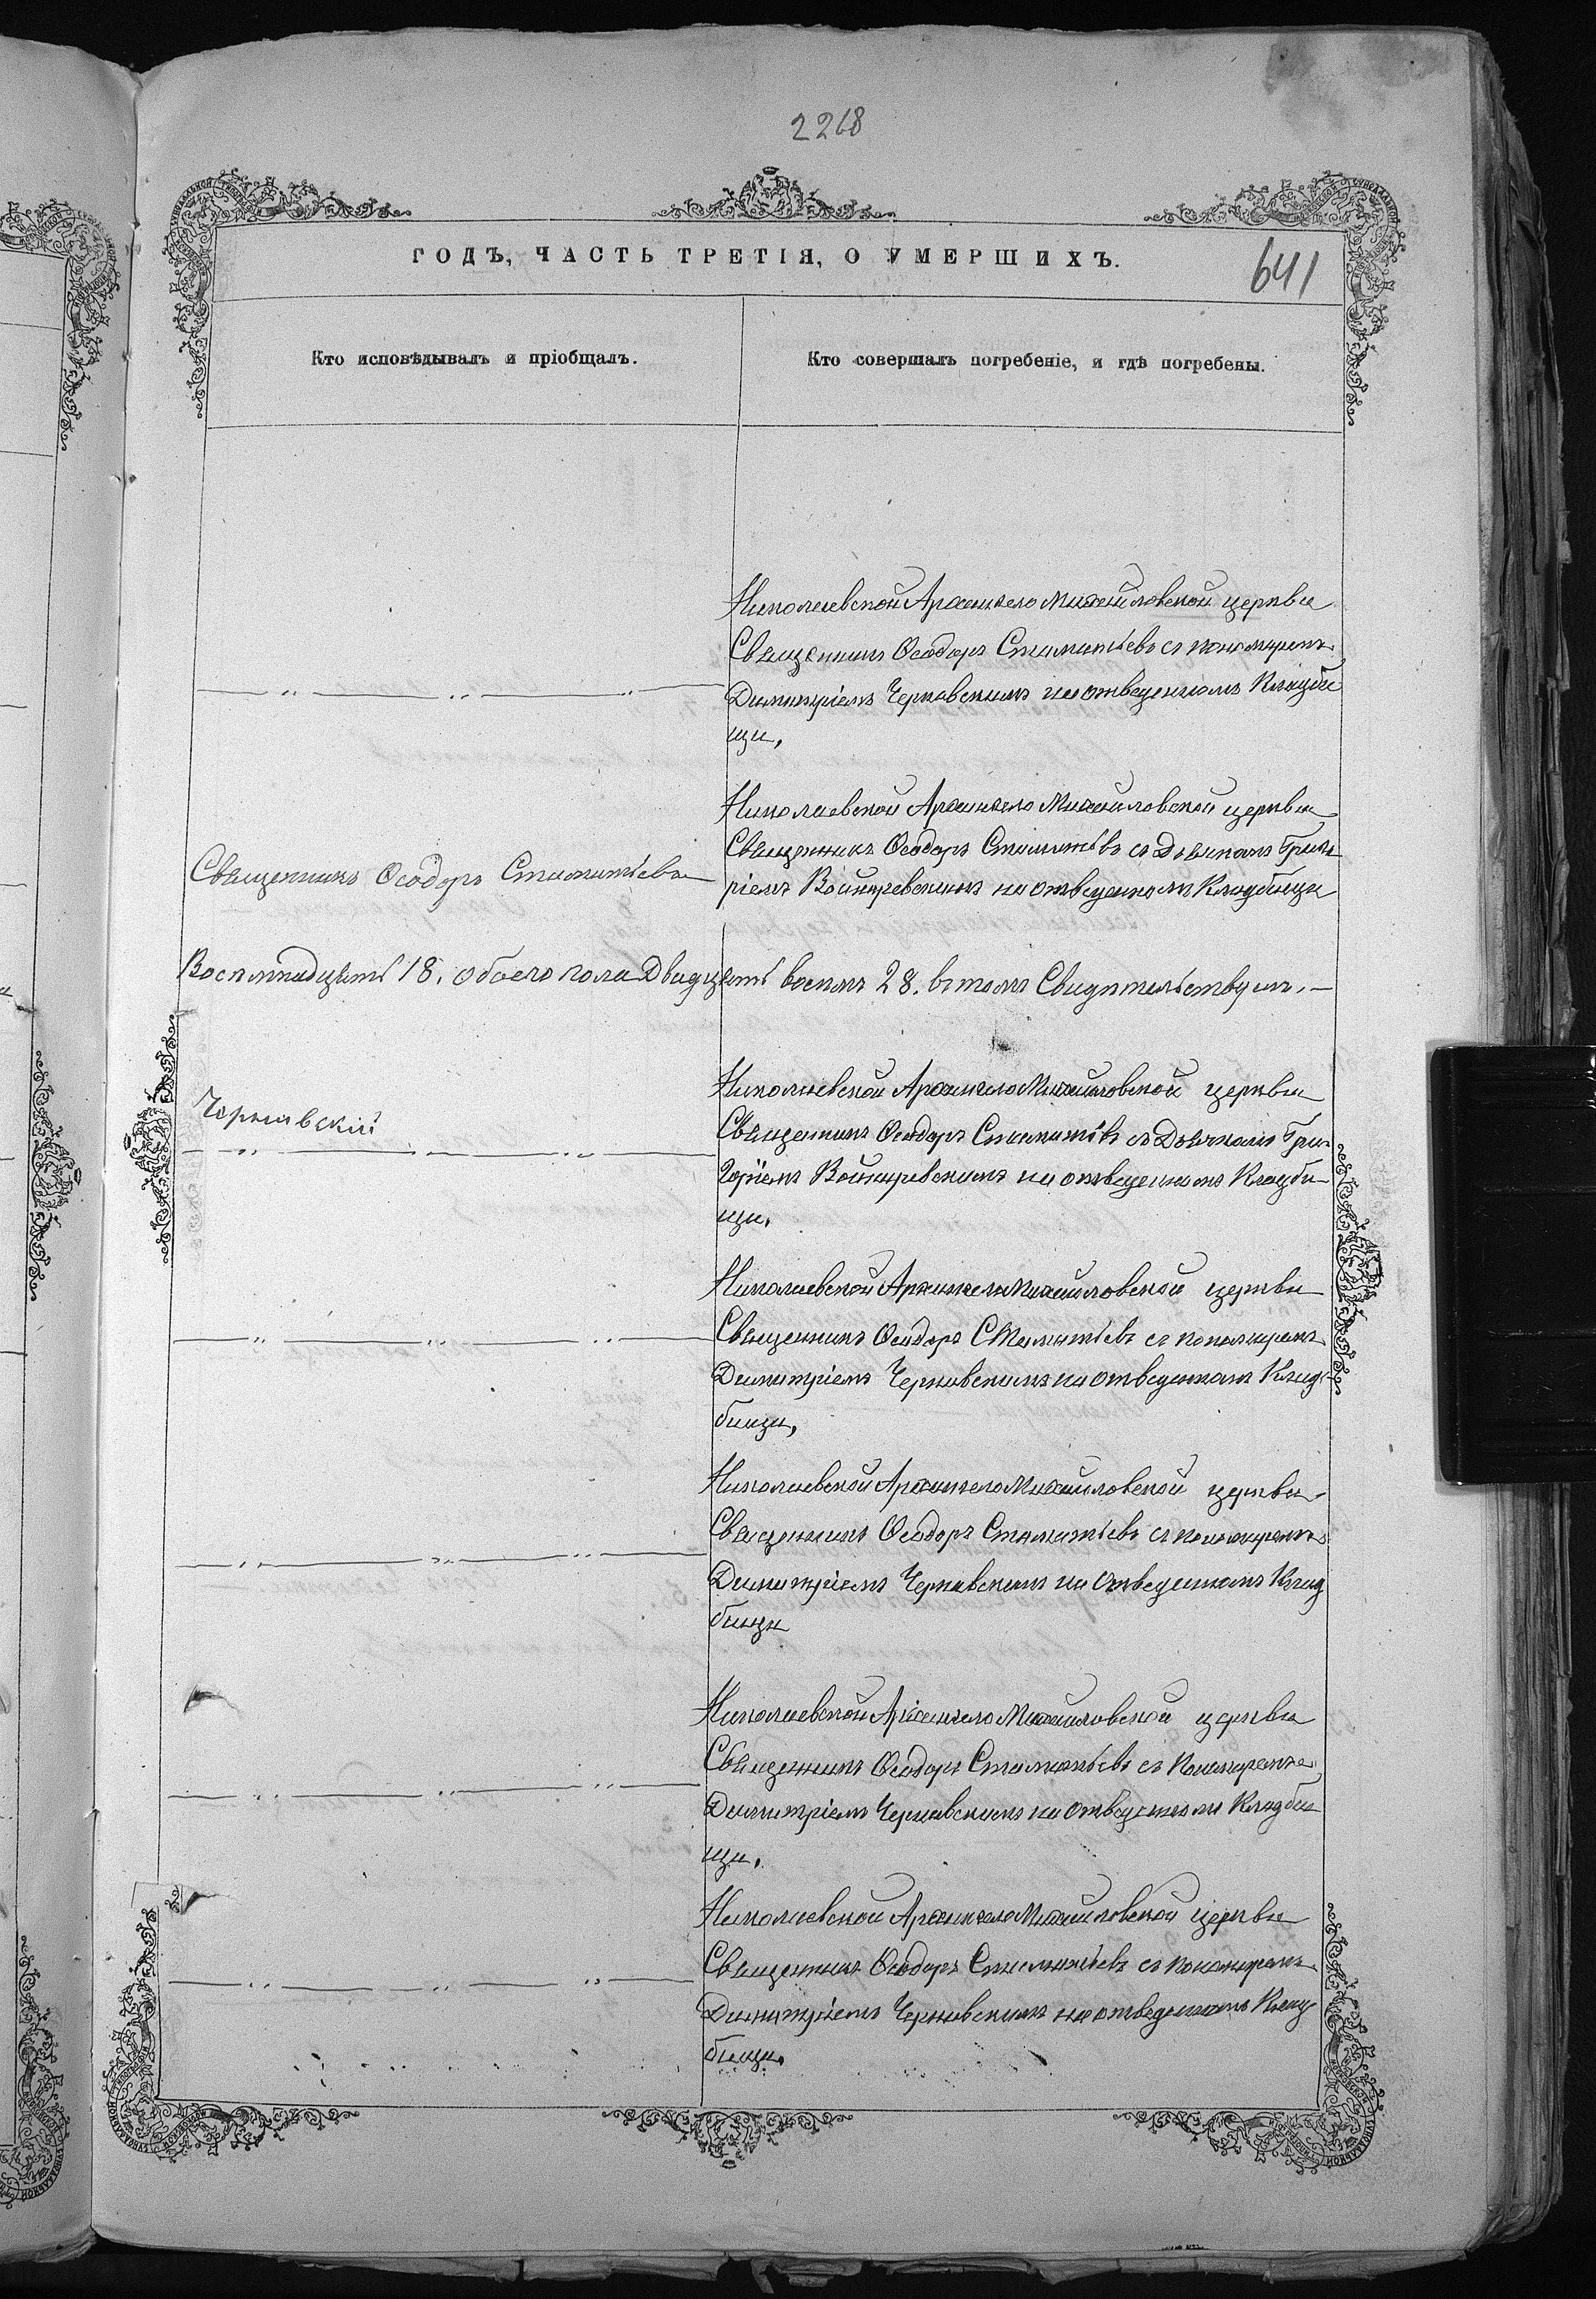 2268
ГОДЪ, ЧАСТЬ ТРЕТІЯ, О УМЕРШИХЪ.
641
Кто исповѣдывалъ и пріобщалъ.
Кто совершалъ погребеніе, и гдѣ погребены.
Николаевской Архангело Михайловской церкви
Священникъ Ѳеодоръ Стаматьевъ съ пономаремъ
Димитріемъ Чернавскимъ на отведенномъ Кладби
щи,
Николаевской Архангело Михайловской церкви
Священникъ Ѳеодоръ Стаматьевъ съ Дьячкомъ Григо
ріемъ Войнаревскимъ на отведенномъ Кладбищи
Священникъ Ѳеодоръ Стаматьевъ
Восемнадцать 18. обоего пола Двадцать восемь 28. въ томъ Свидѣтельствуемъ.
Чернавскій
Николаевской Архангело Михайловской церкви
Священникъ Ѳеодоръ Стаматьевъ съ Дьячкомъ Гри-
горіемъ Войнаревскимъ на отведенномъ Кладби-
щи.
Николаевской Архангело Михайловской церкви
Священникъ Ѳеодоръ Стаматьевъ съ пономаремъ
Димитріемъ Чернавскимъ на отведенномъ Клад-
бищи,
Николаевской Архангело Михайловской церкви
Священникъ Ѳеодоръ Стаматьевъ съ пономаремъ
Димитріемъ Чернавскимъ на отведенномъ Клад
бищи
Николаевской Архангело Михайловской церкви
Священникъ Ѳеодоръ Стаматьевъ съ Пономаремъ
Димитріемъ Чернавскимъ на отведенномъ Кладби
щи.
Николаевской Архангело Михайловской церкви
Священникъ Ѳеодоръ Стаматьевъ съ пономаремъ
Димитріемъ Чернавскимъ на отведенномъ Клад
бищи.